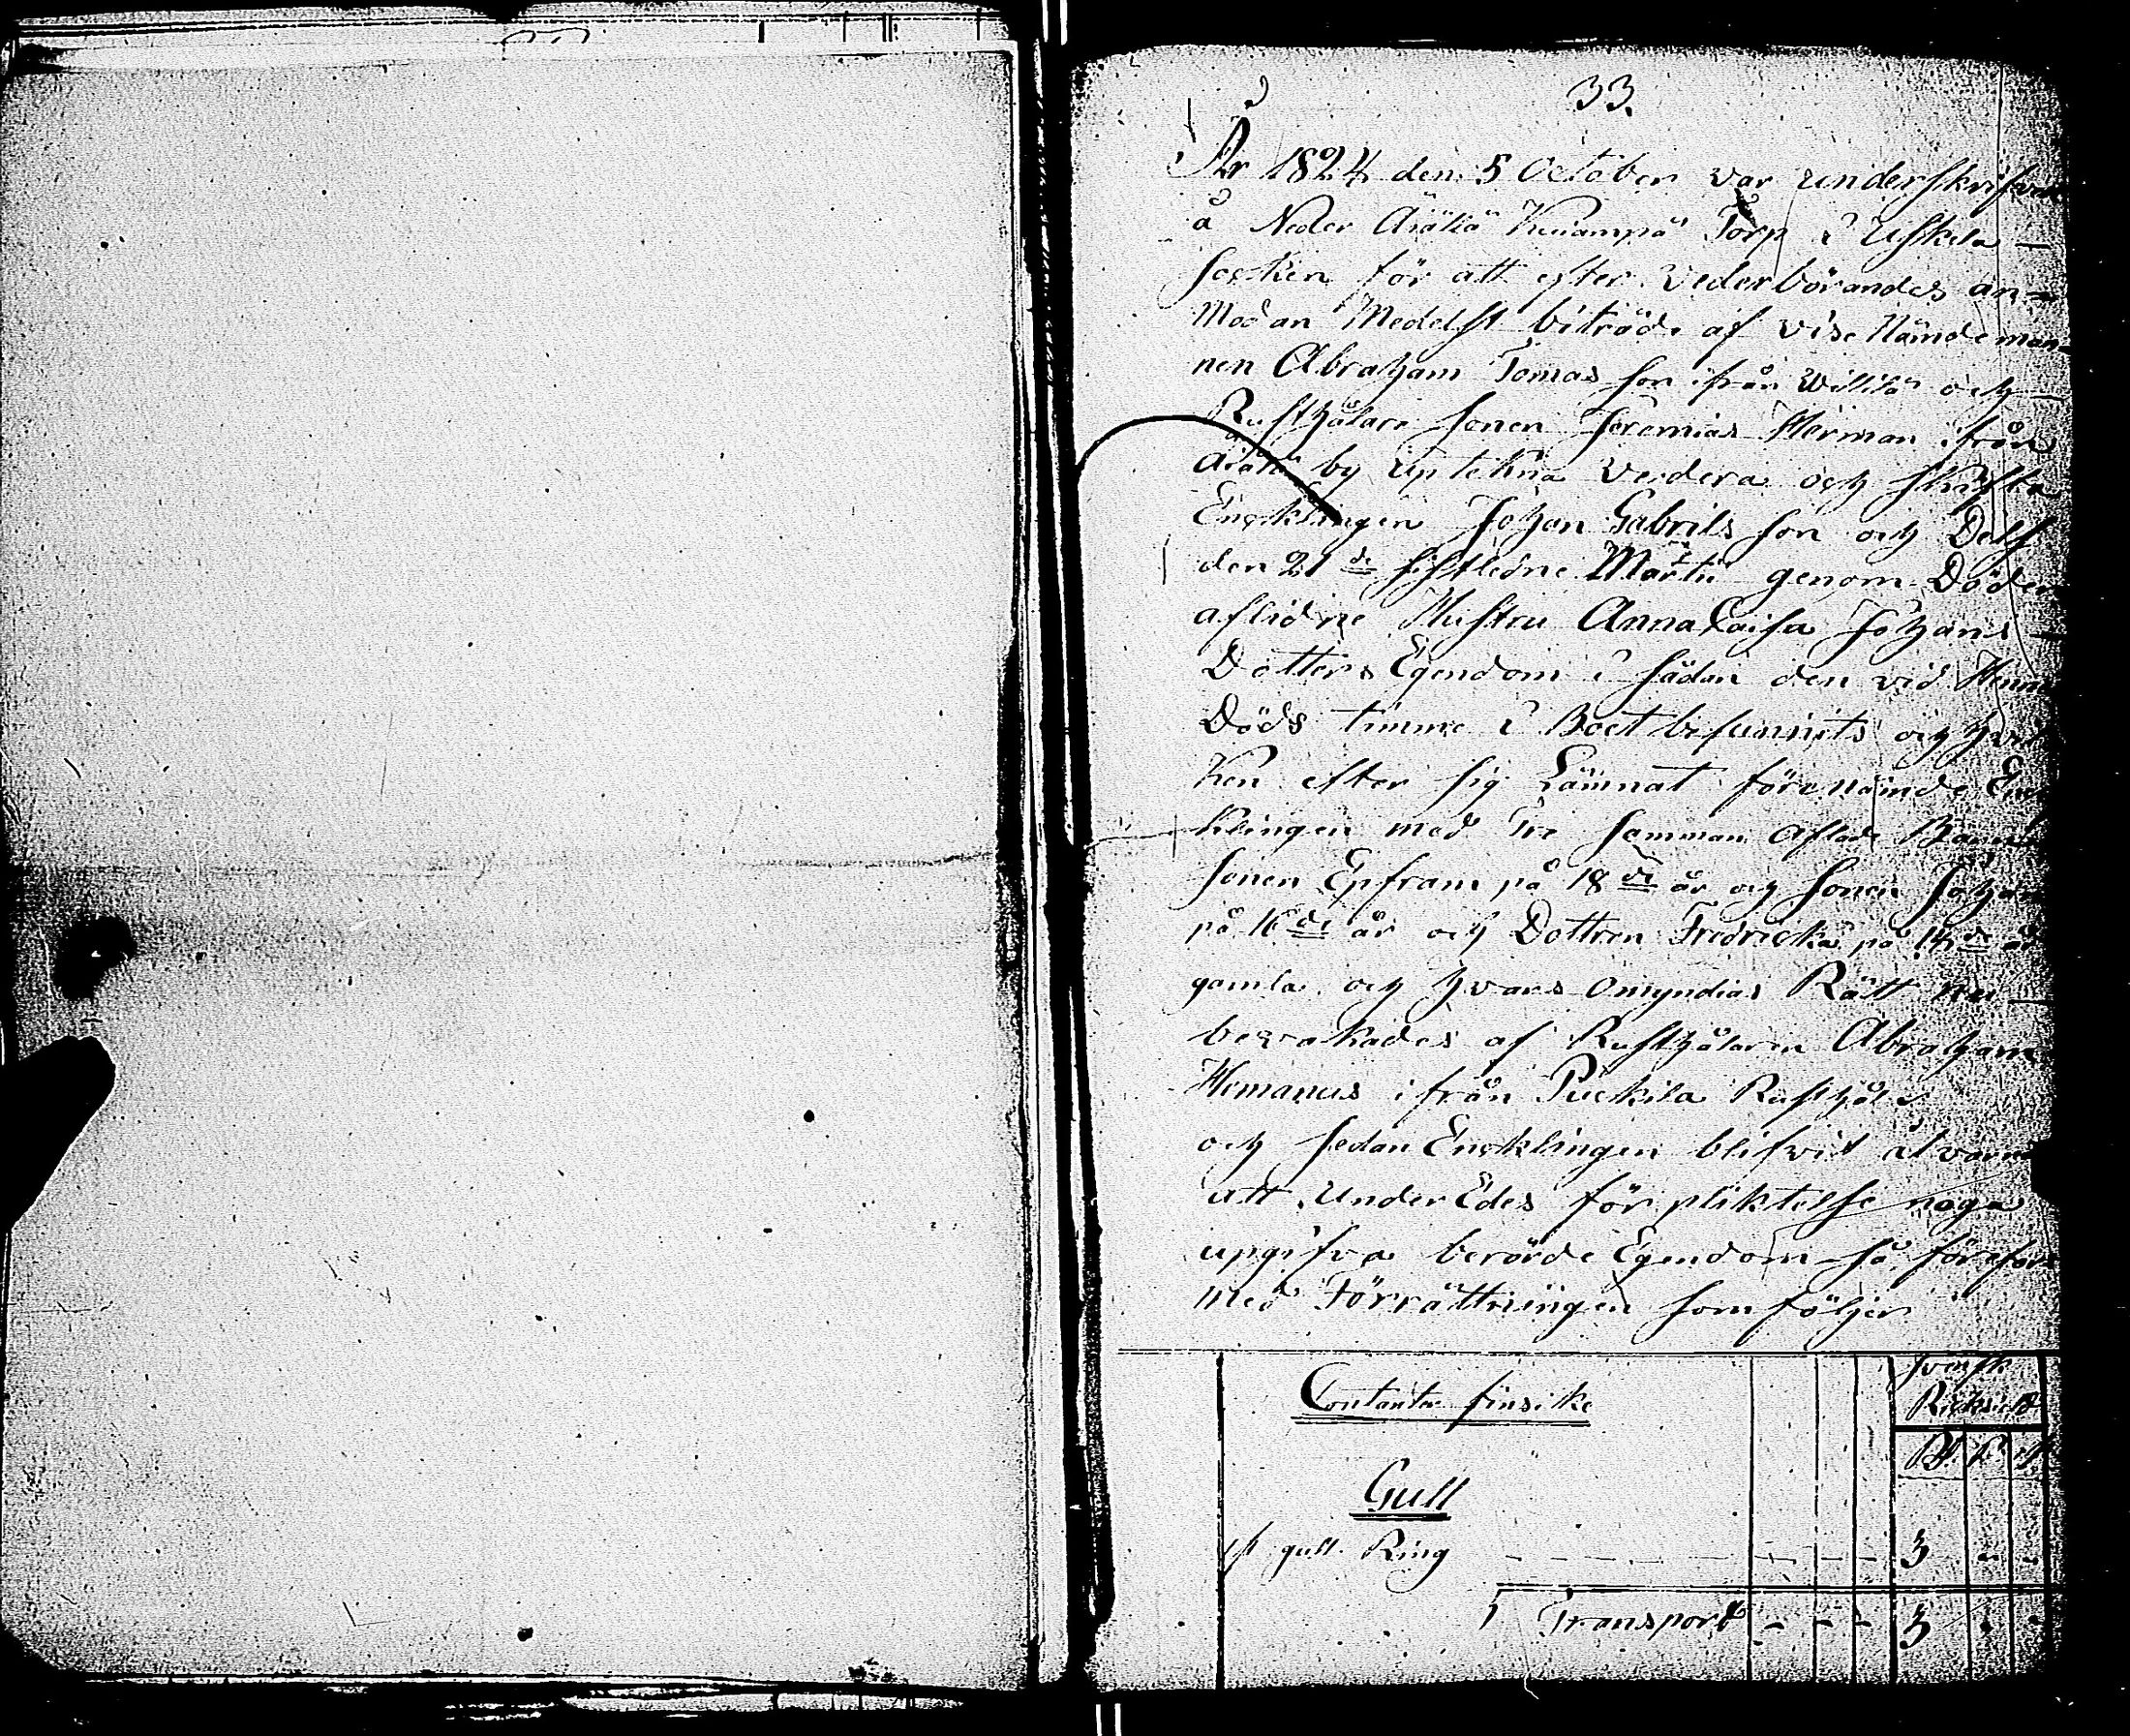 33.
År 1824 den 5 October var underskrifven
å Neder Äiälä Kuiampä Torp i Uskela
socken för att efter vederbörandes an-
modan Medelst biträde af vise Nämndeman-
nen Abraham Tomas son ifrån Willilä och
Rusthålare sonen Jeremias Herman från
Äiälä by uptekna Verdera och skifta
Encklingen Johan Gabrils son och Dess
den 21de sistledne Martii genom Döden
aflidne Hustru Anna Caisa Johans
Dotters Egendom i sådan den vid Hennes
Döds timme i Boet befunnits och hvil
ken efter sig Lämnat förenämde Enck
klingen med Tre samman Aflade Barn
sonen Epfram på 18de år och sonen Johan
på 16de år och Dottren Fredricka på 14de år
gamla och hvars Omyndias Rätt nu
bevakades af Rusthålaren Abraham
Hemanus ifrån Puckila Rusthål
och sedan Encklingen blifvit åtvarnad
att Under Edes förpliktelse noga
upgifva berörde Egendom så
med Förrättningen som följer
Svensk
Contanter finsike Ricksiält
Gull
1 st gull Ring 3 " "
Transport 3